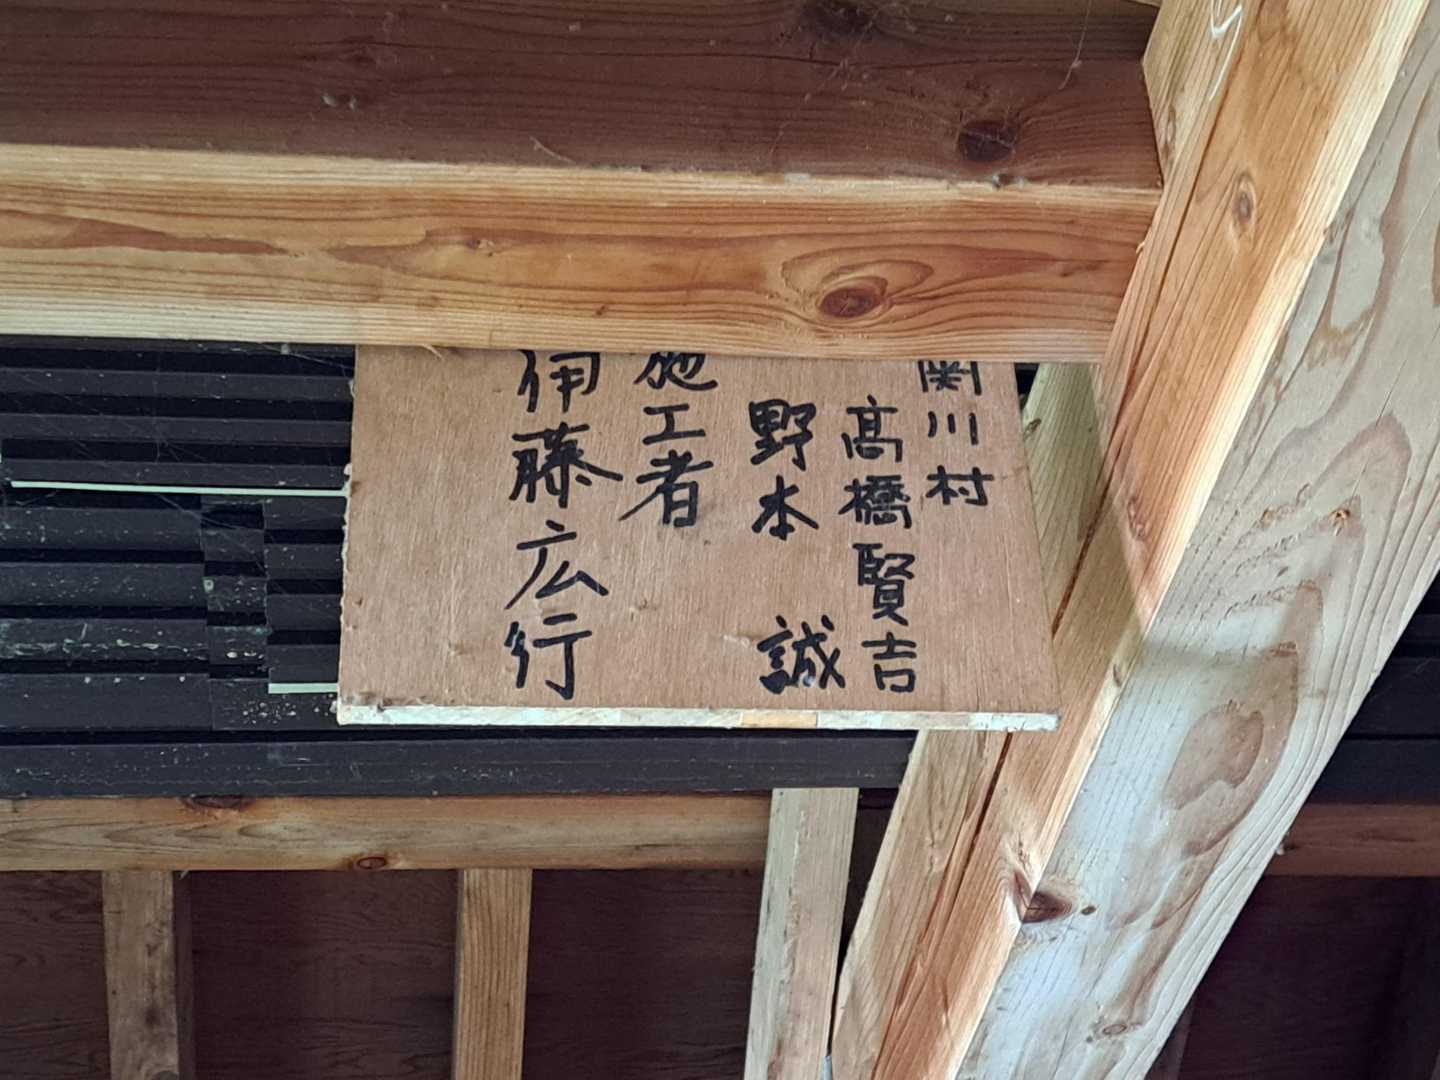 関川村
髙橋賢吉
野本 誠
施工者
伊藤広行